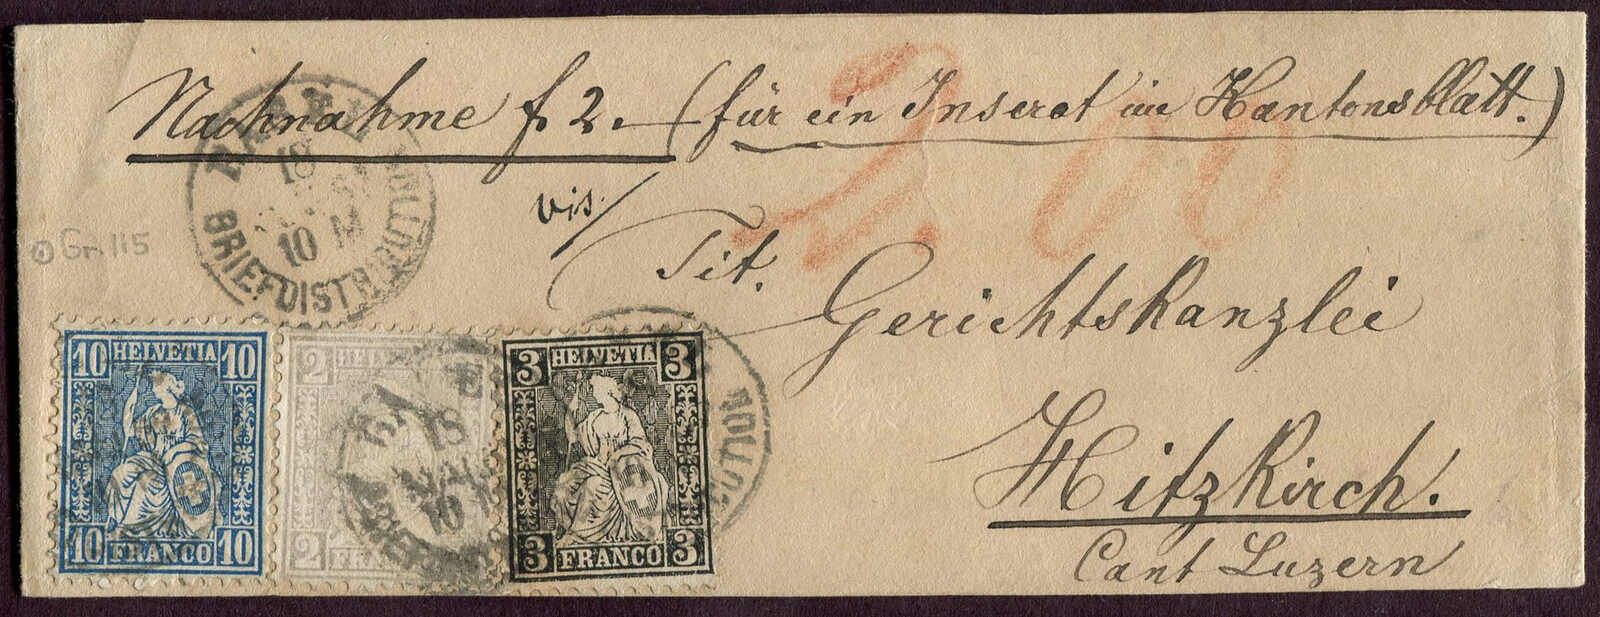 Nachnahme f 2. — (für ein Inserat im Kantonsblatt.)
2.00
vis/
Tit.
Gerichtskanzlei
Hitzkirch.
Cant Luzern
⊙ Gr. 115
AARAU
18
10 M
BRIEFDISTRIBUTION
10 HELVETIA 10
10 FRANCO 10
2 HELVETIA
2 FRANCO
3 HELVETIA 3
3 FRANCO 3
18
10